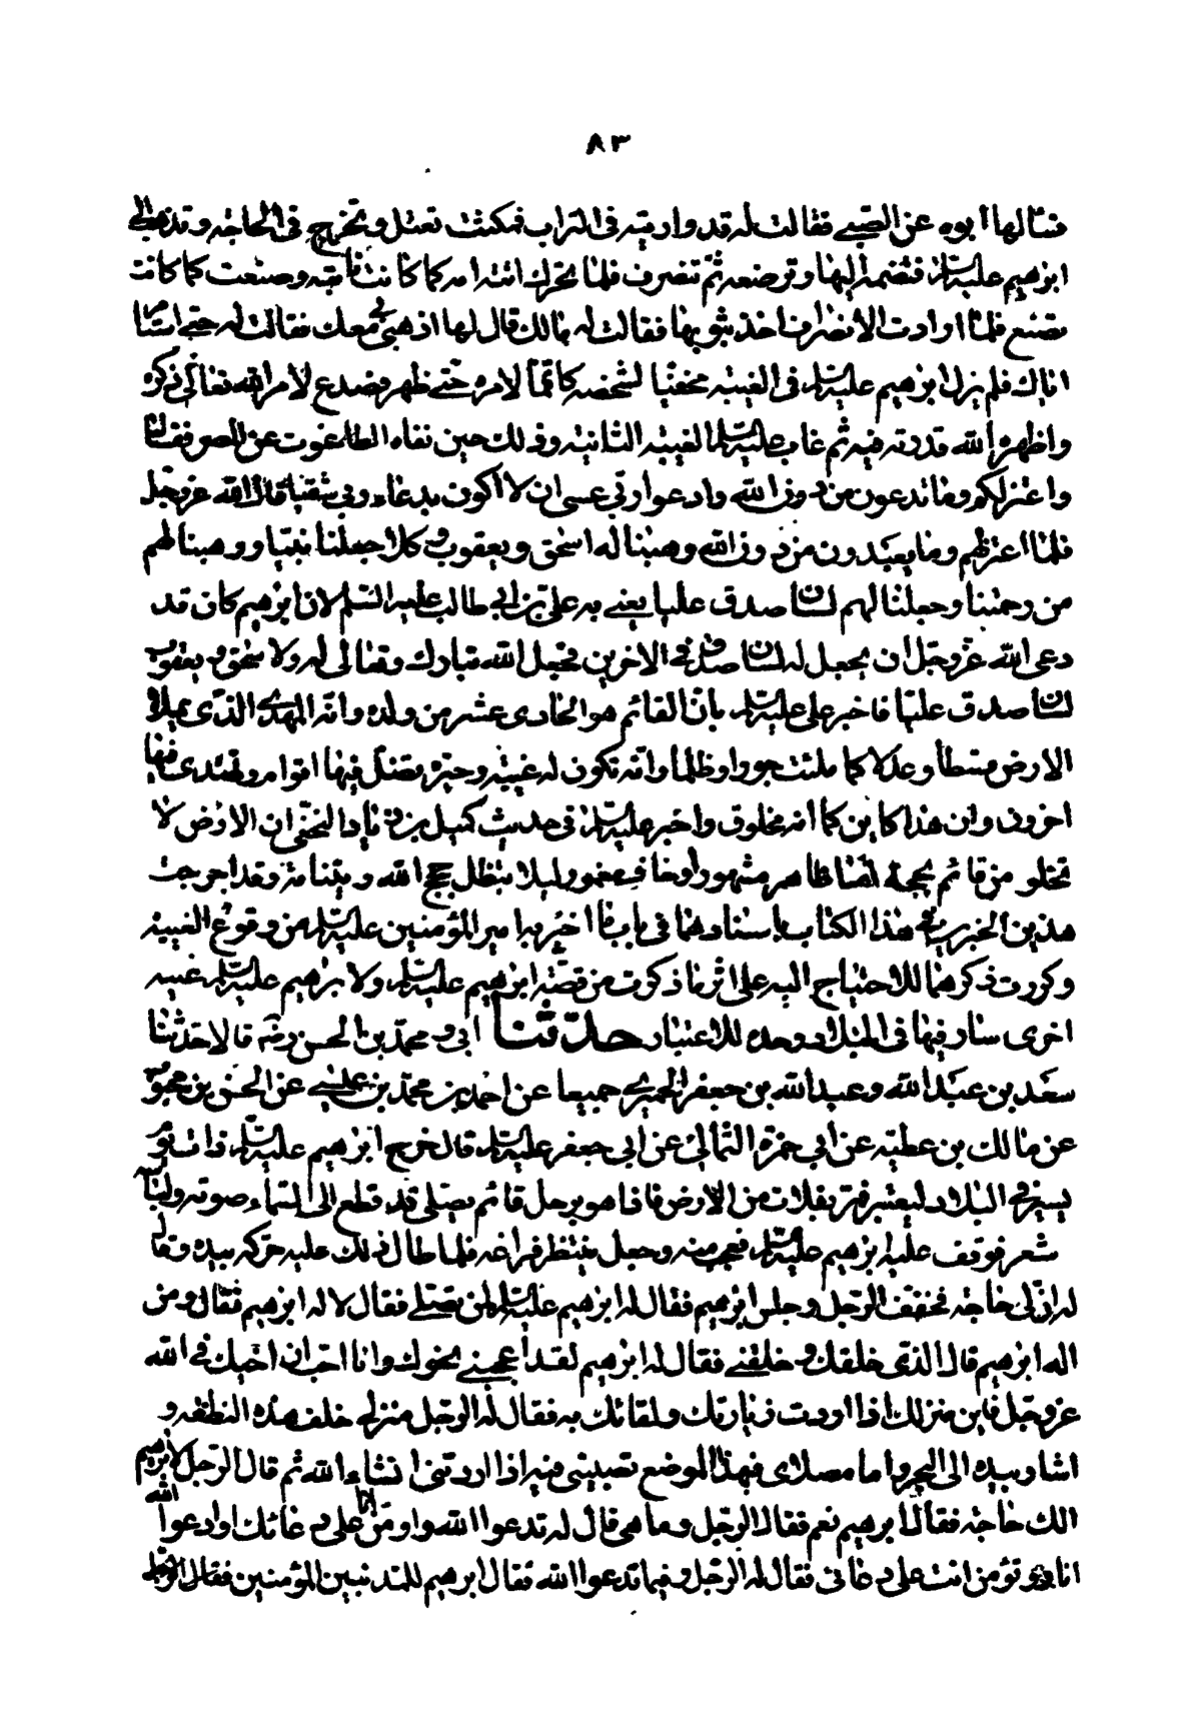 ٨٣
فسالها ابوه عن الصبي فقالت له قد واريته في التراب فمكثت تعتل وتخرج في الحاجة وتذهب الى
ابرهيم عليه السلم فتضمه اليها وترضعه ثم تنصرف فلما تحرك اتته امه كما كانت تاتيه وصنعت كما كانت
تصنع فلما ارادت الانصراف اخذ بثوبها فقالت له مالك قال لها اذهبي بي معك فقالت له حتى استامر
اباك فلم يزل ابرهيم عليه السلم في الغيبة مخفيا لشخصه كاتما لامره حتى ظهر فصدع لامر الله تعالى ذكره
واظهر الله قدرته فيه ثم غاب عليه السلم الغيبة الثانية وذلك حين نفاه الطاغوت عن المصر فقال
واعتزلكم وما تدعون من دون الله وادعوا ربي عسى ان لا اكون بدعاء ربي شقيا قال الله عز وجل
فلما اعتزلهم وما يعبدون من دون الله وهبنا له اسحق ويعقوب وكلا جعلنا نبيا ووهبنا لهم
من رحمتنا وجعلنا لهم لسان صدق عليا يعني به علي بن ابي طالب عليه السلم لان ابرهيم كان قد
دعى الله عز وجل ان يجعل له لسان صدق في الاخرين فجعل الله تبارك وتعالى له ولاسحق ويعقوب
لسان صدق عليا فاخبر علي عليه السلم بان القائم هو الحادي عشر من ولده وانه المهدي الذي يملا
الارض قسطا وعدلا كما ملئت جورا وظلما وانه تكون له غيبة وحيرة يضل فيها اقوام ويهتدي فيها
اخرون وان هذا كاين كما انه مخلوق واخبر عليه السلم في حديث كميل بن زياد النخعي ان الارض لا
تخلو من قائم بحجة اما ظاهر مشهور او خاف مغمور لئلا تبطل حجج الله وبيناته وقد اخرجت
هذين الخبرين في هذا الكتاب باسنادهما في باب ما اخبر به امير المؤمنين عليه السلم من وقوع الغيبة
وكررت ذكرهما للاحتياج اليه على اثر ما ذكرت من قصة ابرهيم عليه السلم ولابرهيم عليه السلم غيبة
اخرى سار فيها في البلاد وحده للاعتبار حدثنا ابي ومحمد بن الحسن رضه قالا حدثنا
سعد بن عبد الله وعبد الله بن جعفر الحميري جميعا عن احمد بن محمد بن عيسى عن الحسن بن محبوب
عن مالك بن عطية عن ابي حمزة الثمالي عن ابي جعفر عليه السلم قال خرج ابرهيم عليه السلم ذات يوم
يسير في البلاد ليعتبر فمر بفلاة من الارض فاذا هو برجل قائم يصلي قد قطع الى السماء صوته ولباسه
شعر فوقف عليه ابرهيم عليه السلم فعجب منه وجعل ينتظر فراغه فلما طال ذلك عليه حركه بيده وقال
له ان لي حاجة فخفف الرجل وجلس ابرهيم فقال له ابرهيم عليه السلم لمن تصلي فقال لاله ابرهيم فقال ومن
اله ابرهيم قال الذي خلقك وخلقني فقال له ابرهيم لقد اعجبني نحوك وانا احب ان اخيك في الله
عز وجل فاين منزلك اذا اردت زيارتك ولقائك به فقال له الرجل منزلي خلف هذه النطفة و
اشار بيده الى البحر واما مصلاي فهذا الموضع تصيبني فيه اذا اردتني انشاء الله ثم قال الرجل لابرهيم
الك حاجة فقال ابرهيم نعم فقال الرجل وما هي قال له تدعوا الله واومن انا على دعائك او ادعوا الله
انا وتؤمن انت على دعائي فقال له الرجل وفيما تدعوا الله فقال ابرهيم للمذنبين المؤمنين فقال الرجل